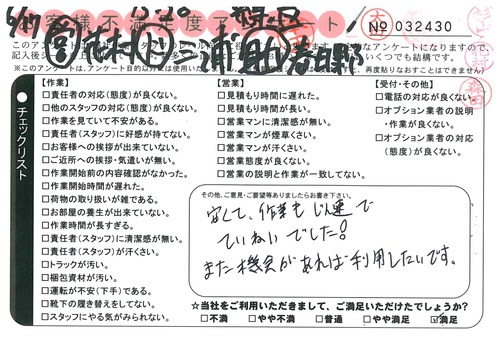 6/17
お客様不満足度アンケート
No 032430
このアン
なアンケートになりますので、
記入後
いくつでも結構です。
(※このアンケートは、アンケート目的以外には使用いたし
再度貼りなおすことはできません)
チェックリスト
【作業】
□責任者の対応(態度)が良くない。
□他のスタッフの対応(態度)が良くない。
□作業を見ていて不安がある。
□責任者(スタッフ)に好感が持てない。
□お客様への挨拶が出来ていない。
□ご近所への挨拶・気遣いが無い。
□作業開始前の内容確認がなかった。
□作業開始時間が遅れた。
□荷物の取り扱いが雑である。
□お部屋の養生が出来ていない。
□作業時間が長すぎる。
□責任者(スタッフ)に清潔感が無い。
□責任者(スタッフ)が汗くさい。
□トラックが汚い。
□梱包資材が汚い。
□運転が不安(下手)である。
□靴下の履き替えをしてない。
□スタッフにやる気がみられない。
【営業】
□見積もり時間に遅れた。
□見積もり時間が長い。
□営業マンに清潔感が無い。
□営業マンが煙草くさい。
□営業マンが汗くさい。
□営業態度が良くない。
□営業の説明と作業が一致してない。
【受付・その他】
□電話の対応が良くない。
□オプション業者の説明
・作業が良くない。
□オプション業者の対応
(態度)が良くない。
その他、ご意見・ご要望等ありましたらお書き下さい。
安くて、作業も迅速で
ていねいでした!
また機会があれば利用したいです。
☆当社をご利用いただきまして、ご満足いただけたでしょうか?
□不満 □やや不満 □普通 □やや満足 ☑満足